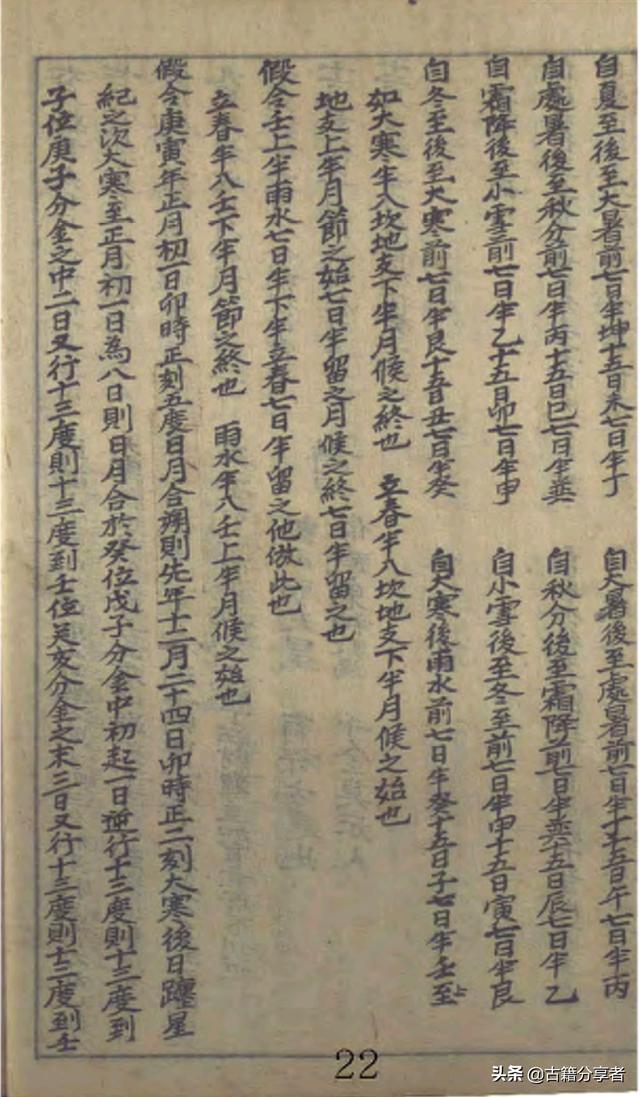 自夏至後至大暑前七日半坤十五日未七日半丁　自大暑後至處暑前七日半丁十五日午七日半丙
自處暑後至秋分前七日半丙十五日巳七日半巽　自秋分後至霜降前七日半巽十五日辰七日半乙
自霜降後至小雪前七日半乙十五日卯七日半甲　自小雪後至冬至前七日半甲十五日寅七日半艮
自冬至後至大寒前七日半艮十五日丑七日半癸　自大寒後雨水前七日半癸十五日子七日半壬至
如大寒半入坎地支下半月候之終也　立春半入坎地支下半月候之始也
地支上半月節之始七日半留之月候之終七日半留之也
假令壬上半雨水七日半下半立春七日半留之他倣此也
立春半入壬下半月節之終也　雨水半入壬上半月候之始也
假令庚寅年正月初一日卯時正刻五度日月合朔則先年十二月二十四日卯時正二刻大寒後日躔星
紀之次大寒至正月初一日為八日則日月合於癸位戊子分金中初起一日逆行十三度則十三度到
子位庚子分金之中二日又行十三度則十三度到壬位亥分金之末三日又行十三度則十三度到壬
22
头条 @古籍分享者